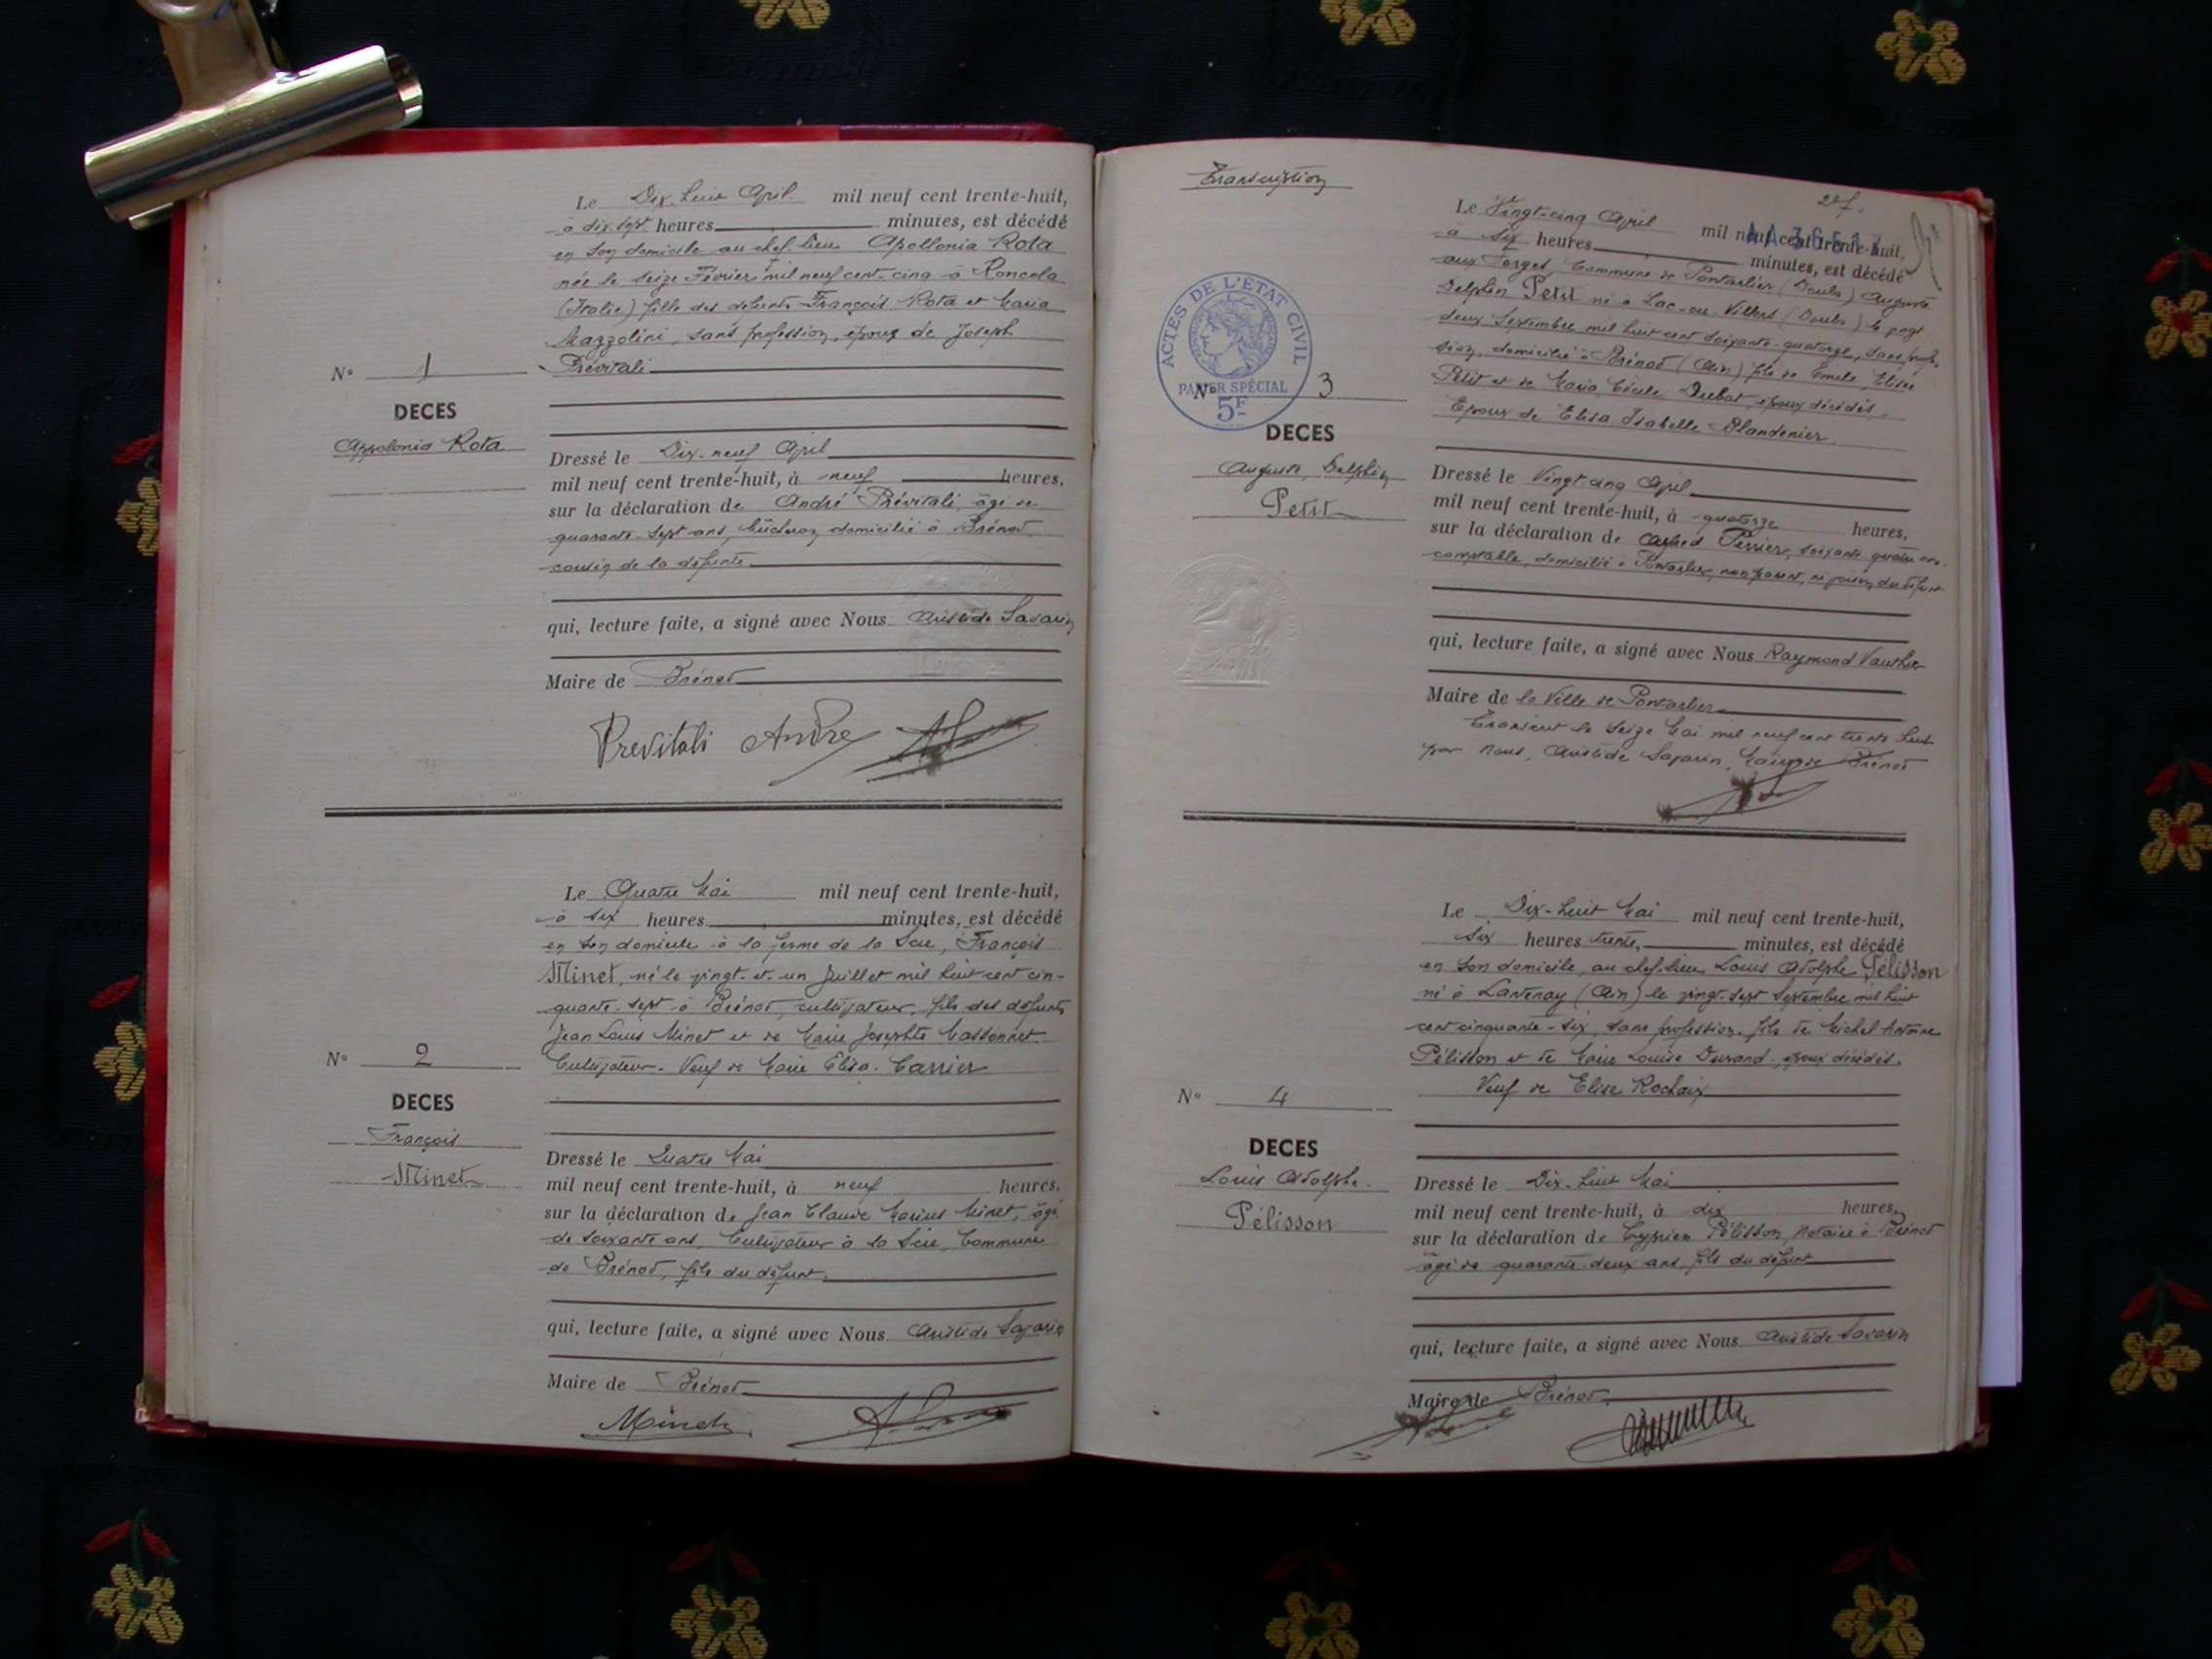 Le Dix-huit Avril mil neuf cent trente-huit,
à dix sept heures minutes, est décédé
en son domicile au chef-lieu Apollonia Rota
née le seize Février mil neuf cent cinq à Roncola
(Italie) fille des défunts François Rota et Maria
Mazzolini, sans profession, épouse de Joseph
Prévitali
N° 1
DECES
Appolonia Rota
Dressé le Dix-neuf Avril
mil neuf cent trente-huit, à neuf heures,
sur la déclaration de André Prévitali, âgé de
quarante-sept ans, bûcheron, domicilié à Brénod,
cousin de la défunte
qui, lecture faite, a signé avec Nous Aristide Savarin
Maire de Brénod
Prévitali André
Le Quatre Mai mil neuf cent trente-huit,
à six heures minutes, est décédé
en son domicile à la ferme de la Scie, François
Minet, né le vingt-et-un Juillet mil huit cent cin-
quante-sept à Brénod, cultivateur, fils des défunts
Jean Louis Minet et de Marie Josephte Massonnet.
Cultivateur. Veuf de Marie Elisa Carrier
N° 2
DECES
François
Minet
Dressé le Quatre Mai
mil neuf cent trente-huit, à neuf heures,
sur la déclaration de Jean Claude Marius Minet, âgé
de soixante ans, Cultivateur à la Scie, Commune
de Brénod, fils du défunt.
qui, lecture faite, a signé avec Nous Aristide Savarin
Maire de Brénod
Minet
Transcription
Le Vingt-cinq Avril mil neuf cent trente-huit,
à six heures minutes, est décédé
aux Forges, Commune de Pontarlier (Doubs) Auguste
Delphin Petit né à Lac-ou-Villers (Doubs) le vingt
deux Septembre mil huit cent soixante-quatorze, sans profes-
sion, domicilié à Brénod (Ain) fils de Emile Elisée
Petit et de Maria Cécile Dubat, époux décédés.
Epoux de Elisa Isabelle Blandenier.
ACTES DE L'ÉTAT CIVIL
PAPIER SPÉCIAL
5F
N° 3
DECES
Auguste, Delphin
Petit
Dressé le Vingt-cinq Avril
mil neuf cent trente-huit, à quatorze heures,
sur la déclaration de Alfred Perrier, soixante quatre ans
comptable, domicilié à Pontarlier, non parent, ni voisin du défunt
qui, lecture faite, a signé avec Nous Raymond Vauthier
Maire de la Ville de Pontarlier
Transcrit le seize Mai mil neuf cent trente huit
par Nous, Aristide Savarin, Maire de Brénod
Le Dix-huit Mai mil neuf cent trente-huit,
six heures trente minutes, est décédé
en son domicile, au chef-lieu Louis Adolphe Pélisson
né à Lantenay (Ain) le vingt-sept Septembre mil huit
cent cinquante-six, sans profession, fils de Michel Antoine
Pélisson et de Marie Louise Durand, époux décédés.
Veuf de Elise Rochaix
N° 4
DECES
Louis Adolphe
Pélisson
Dressé le Dix-huit Mai
mil neuf cent trente-huit, à dix heures,
sur la déclaration de Cyprien Pélisson, Notaire à Brénod
âgé de quarante deux ans, fils du défunt
qui, lecture faite, a signé avec Nous Aristide Savarin
Maire de Brénod